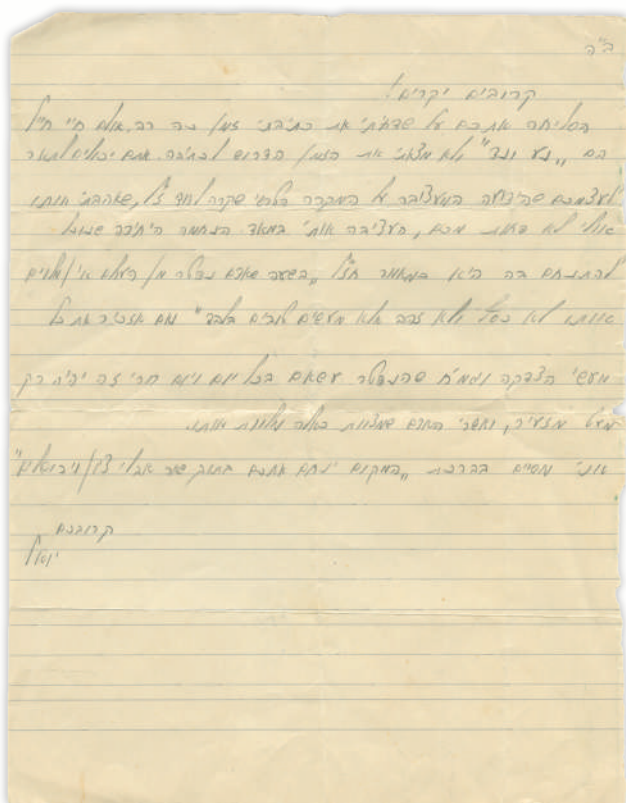 ב"ה
קרובים יקרים!
הסליחה אתכם על שדחיתי את כתיבתי זמן כה רב. אולם חיי חייל
הם "נע ונד" ולא מצאתי את הזמן הדרוש לכתיבה. אתם יכולים לתאר
לעצמכם שהידיעה המעציבה על המקרה שקרה לדוד ז"ל, שאהבתי אותו
אולי לא פחות מכם, העציבה אותי במאד הנחמה היחידה שנוכל
להתנחם בה היא במאמר חז"ל "בשעה שאדם נפטר מן העולם אין מלוים
אותו לא כסף ולא זהב אלא מעשים טובים בלבד" ואם אזכיר את כל
מעשי הצדקה וגמ"ח שהנפטר עשאם בכל יום ויום הרי זה יהיה רק
מעט מזעיר, ואשרי האדם שמצוות כאלה מלוות אותו.
אני מסיים בברכת "המקום ינחם אתכם בתוך שאר אבלי ציון וירושלים"
קרובכם